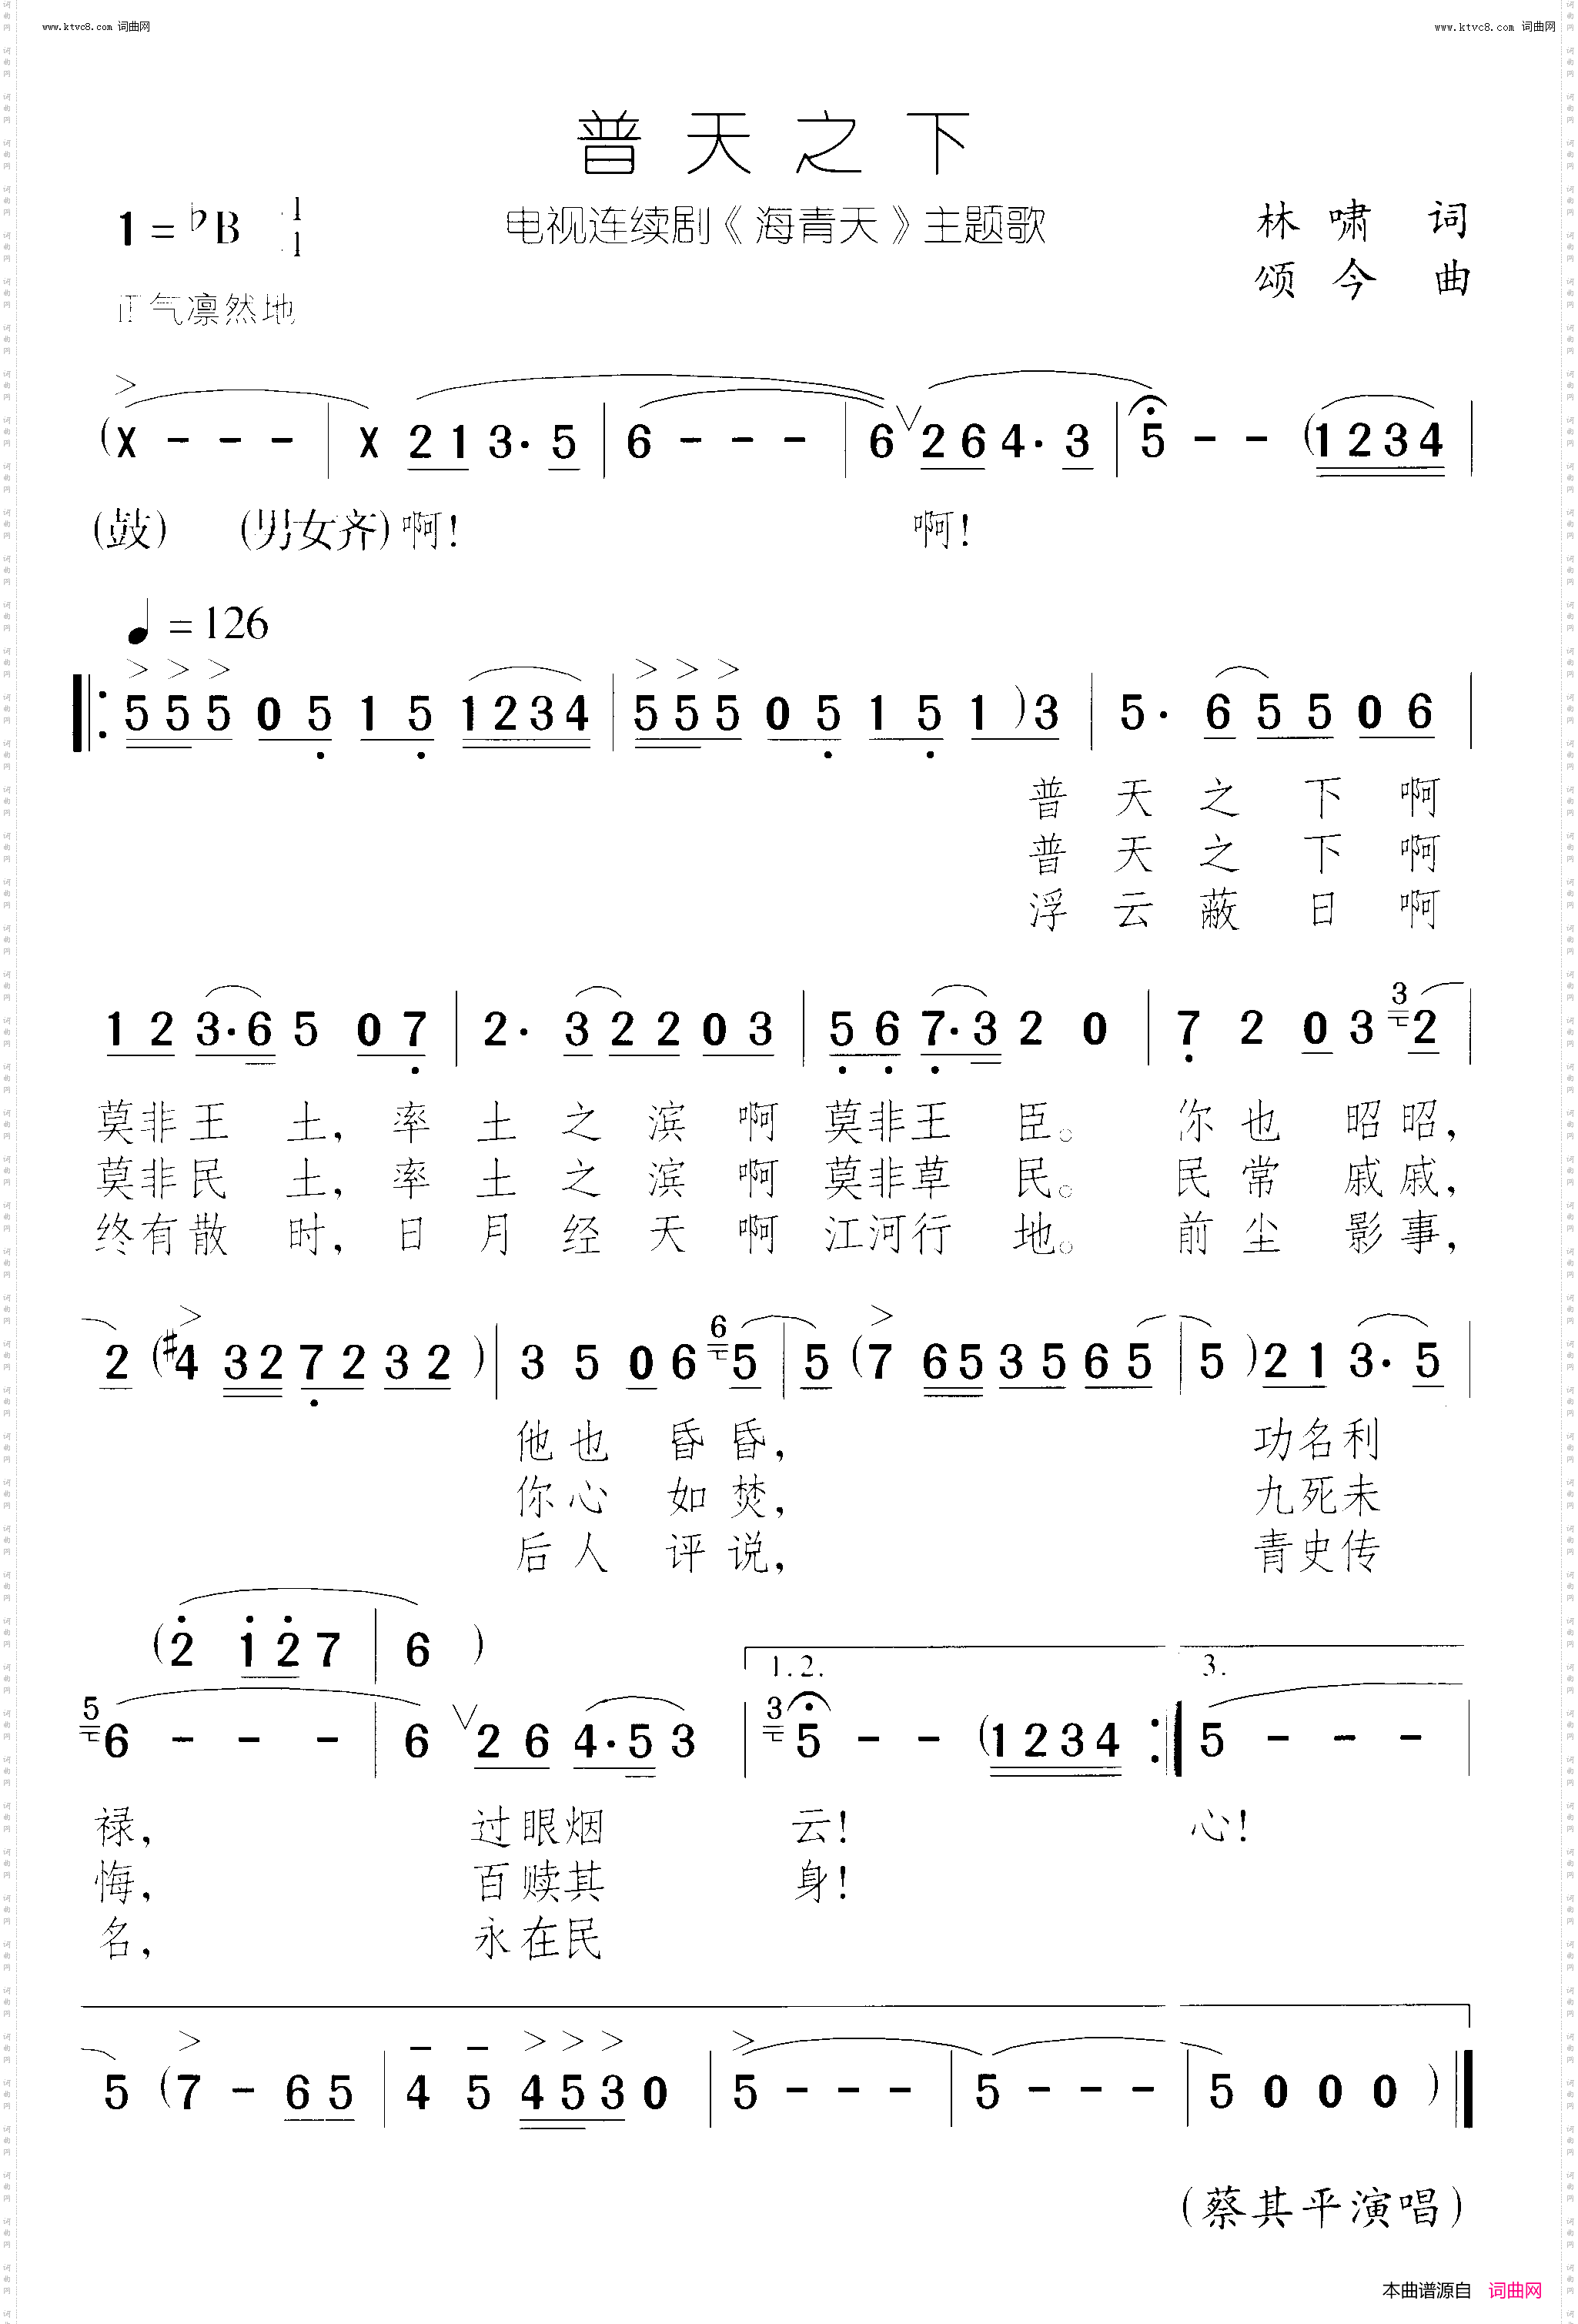 www.ktvc8.com 词曲网 www.ktvc8.com 词曲网
普天之下
1=♭B 电视连续剧《海青天》主题歌 林啸 词
颂今 曲
正气凛然地
(X - - - | X 2 1 3· 5 | 6 - - - | 6 ∨ 2 6 4· 3 | 5 - - (1 2 3 4 |
(鼓) (男女齐)啊! 啊!
♩=126
‖: 5 5 5 0 5 1 5 1 2 3 4 | 5 5 5 0 5 1 5 1 ) 3 | 5· 6 5 5 0 6 |
普 天 之 下 啊
普 天 之 下 啊
浮 云 蔽 日 啊
1 2 3· 6 5 0 7 | 2· 3 2 2 0 3 | 5 6 7· 3 2 0 | 7 2 0 3 3 2 |
莫非王 土, 率 土 之 滨 啊 莫非王 臣。 你 也 昭昭,
莫非民 土, 率 土 之 滨 啊 莫非草 民。 民 常 戚戚,
终有散 时, 日 月 经 天 啊 江河行 地。 前 尘 影事,
2 (#4 3 2 7 2 3 2 ) | 3 5 0 6 6 5 | 5 (7 6 5 3 5 6 5 | 5 ) 2 1 3· 5 |
他也 昏昏, 功名利
你心 如焚, 九死未
后人 评说, 青史传
(2 1 2 7 | 6 )
1.2. 3.
5 6 - - - | 6 ∨ 2 6 4· 5 3 | 3 5 - - (1 2 3 4 :‖ 5 - - - |
禄, 过眼烟 云! 心!
悔, 百赎其 身!
名, 永在民
5 (7 - 6 5 | 4 5 4 5 3 0 | 5 - - - | 5 - - - | 5 0 0 0 ) ‖
(蔡其平演唱)
本曲谱源自 词曲网